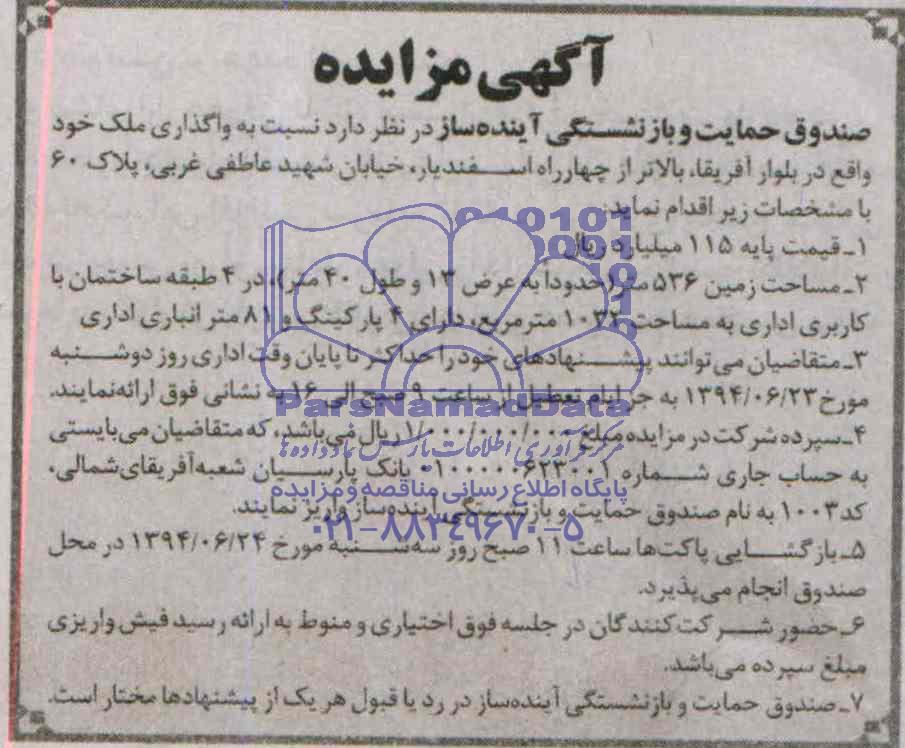 آگهی مزایده
صندوق حمایت و بازنشستگی آینده‌ساز در نظر دارد نسبت به واگذاری ملک خود
واقع در بلوار آفریقا، بالاتر از چهارراه اسفندیار، خیابان شهید عاطفی غربی، پلاک ۶۰
با مشخصات زیر اقدام نماید:
۱ـ قیمت پایه ۱۱۵ میلیارد ریال
۲ـ مساحت زمین ۵۳۶ متر (حدوداً به عرض ۱۳ و طول ۴۰ متر)، در ۴ طبقه ساختمان با
کاربری اداری به مساحت ۱۰۳۲ مترمربع، دارای ۴ پارکینگ و ۸۱ متر انباری اداری
۳ـ متقاضیان می‌توانند پیشنهادهای خود را حداکثر تا پایان وقت اداری روز دوشنبه
مورخ ۱۳۹۴/۰۶/۲۳ به جز ایام تعطیل از ساعت ۹ صبح الی ۱۶ به نشانی فوق ارائه نمایند.
ParsNamadData
۴ـ سپرده شرکت در مزایده مبلغ ۱/۰۰۰/۰۰۰/۰۰۰ ریال می‌باشد، که متقاضیان می‌بایستی
مرکز فرآوری اطلاعات پارس نماد داده‌ها
به حساب جاری شماره بانک پارسیان شعبه آفریقای شمالی،
پایگاه اطلاع رسانی مناقصه و مزایده
کد ۱۰۰۳ به نام صندوق حمایت و بازنشستگی آینده‌ساز واریز نمایند.
۰۲۱-۸۸۳۴۹۶۷۰-۵
۵ـ بازگشایی پاکت‌ها ساعت ۱۱ صبح روز سه‌شنبه مورخ ۱۳۹۴/۰۶/۲۴ در محل
صندوق انجام می‌پذیرد.
۶ـ حضور شرکت‌کنندگان در جلسه فوق اختیاری و منوط به ارائه رسید فیش واریزی
مبلغ سپرده می‌باشد.
۷ـ صندوق حمایت و بازنشستگی آینده‌ساز در رد یا قبول هر یک از پیشنهادها مختار است.